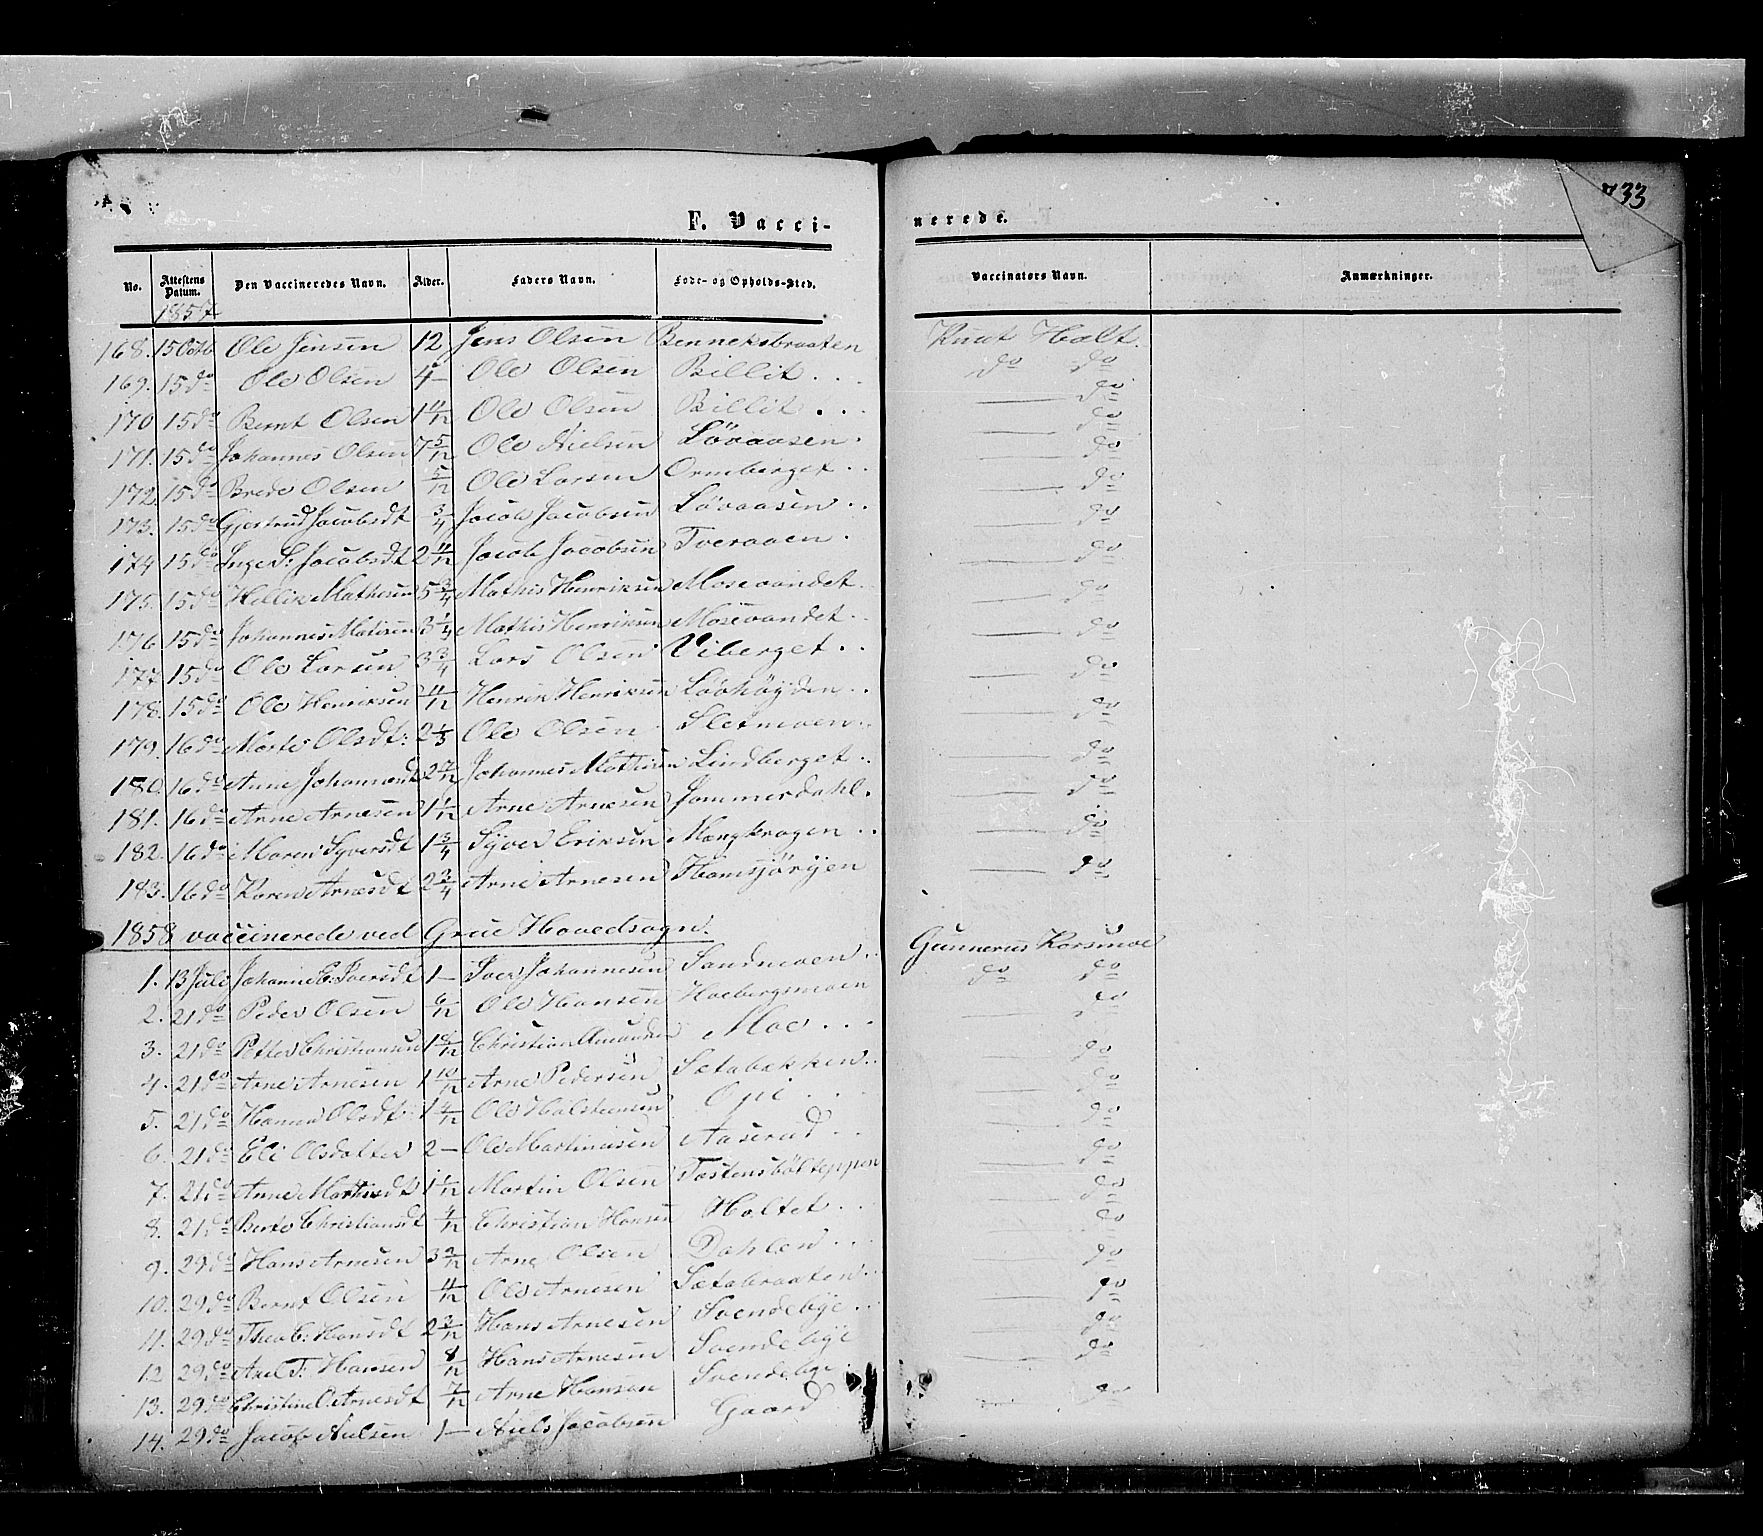 733
F. Vacci-
nerede.
No. Attestens Datum. Den Vaccineredes Navn. Alder. Faders Navn. Føde- og Opholds-Sted. Vaccinatørs Navn. Anmærkninger.
1857
168. 15 Octb Ole Jensen 12 Jens Olsen Benneksbraaten Knut Holt.
169. 15 do Ole Olsen 4 — Ole Olsen Billit . . . do do
170 15 do Bernt Olsen 1 11/12 Ole Olsen Billit . . . — do
171. 15 do Johannes Olsen 7 5/12 Ole Nielsen Løvaasen . — do
172. 15 do Brede Olsen 5/12 Ole Larsen Ormberget . . — do
173. 15 do Gjertrud Jacobsdt 3/4 Jacob Jacobsen Løvaasen . . — do
174 15 do Inge S: Jacobsdt 2 11/12 Jacob Jacobsen Tveraaen . — do
175. 15 do Hellik Mathesen 5 3/4 Mathis Henriksen Mosevandet . — do
176. 15 do Johannes Matisen 3 1/4 Mathis Henriksen Mosevandet . . — do
177. 15 do Ole Larsen 3 3/4 Lars Olsen Viberget . . — do
178. 15 do Ole Henriksen 11/12 Henrik Henriksen Løvhöyden . . — do
179. 16 do Marte Olsdt: 2 1/3 Ole Olsen Sletmoen . . — do
180. 16 do Anne Johannesdt 2 7/12 Johannes Mathisen Lindberget . . — do
181. 16 do Arne Arnesen 1 1/12 Arne Arnesen Jammerdahl . — do
182. 16 do Maren Syversdt 1 3/4 Syver Eriksen Mangkragen . . — do
183. 16 do Karen Arnesdt 2 3/4 Arne Arnesen Hamsjörgen — do
1858 vaccinerede ved Grue Hovedsogn.
1. 13 Juli Johanne E: Iversdt 1 — Iver Johannesen Sandmoen . . Gunnerus Korsmoe
2. 21 do Peder Olsen 6/12 Ole Hansen Hoebergsmoen do do
3. 21 do Petter Christiansen 1 6/12 Christian Amundsen Moe . . . — do
4. 21 do Arne Arnesen 1 10/12 Arne Pedersen Sætabækken . . — do
5. 21 do Hanna Olsdt: 1 4/12 Ole Halsteensen Opi . . . — do
6. 21 do Eli Olsdatter 2 — Ole Martinusen Aaserud . . — do
7. 21 do Anne Martinsdt 1 1/12 Martin Olsen Tostensböleppen — do
8. 21 do Berte Christiansdt 4/12 Christian Hansen Holtet . . . — do
9. 29 do Hans Arnesen 3 2/12 Arne Olsen Dahlen . . . — do
10. 29 do Bernt Olsen 11/12 Ole Arnesen Sætabraaten . . — do
11. 29 do Thea C: Hansdt 2 3/12 Hans Arnesen Svendebye . . . — do
12 29 do Axel T: Hansen 8/12 Hans Arnesen Svendebye — do
13. 29 do Christine O: Arnesdt 7/12 Arne Hansen Svendebye — do
14. 29 do Jacob Nilsen 1 — Niels Jacobsen Gaard — do